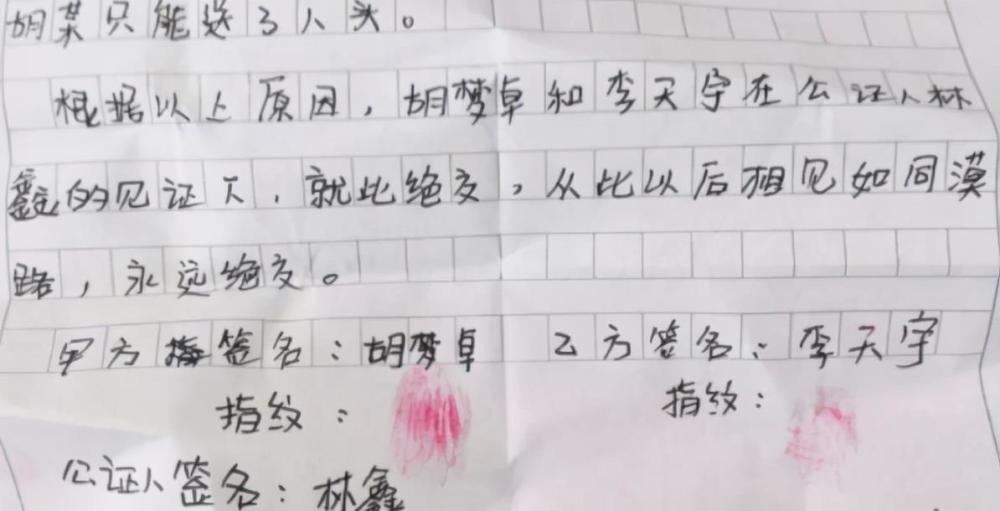 胡某只能送了人头。
根据以上原因，胡梦卓和李天宇在公证人林
鑫的见证下，就此绝交，从此以后相见如同漠
路，永远绝交。
甲方签名：胡梦卓 乙方签名：李天宇
指纹： 指纹：
公证人签名：林鑫